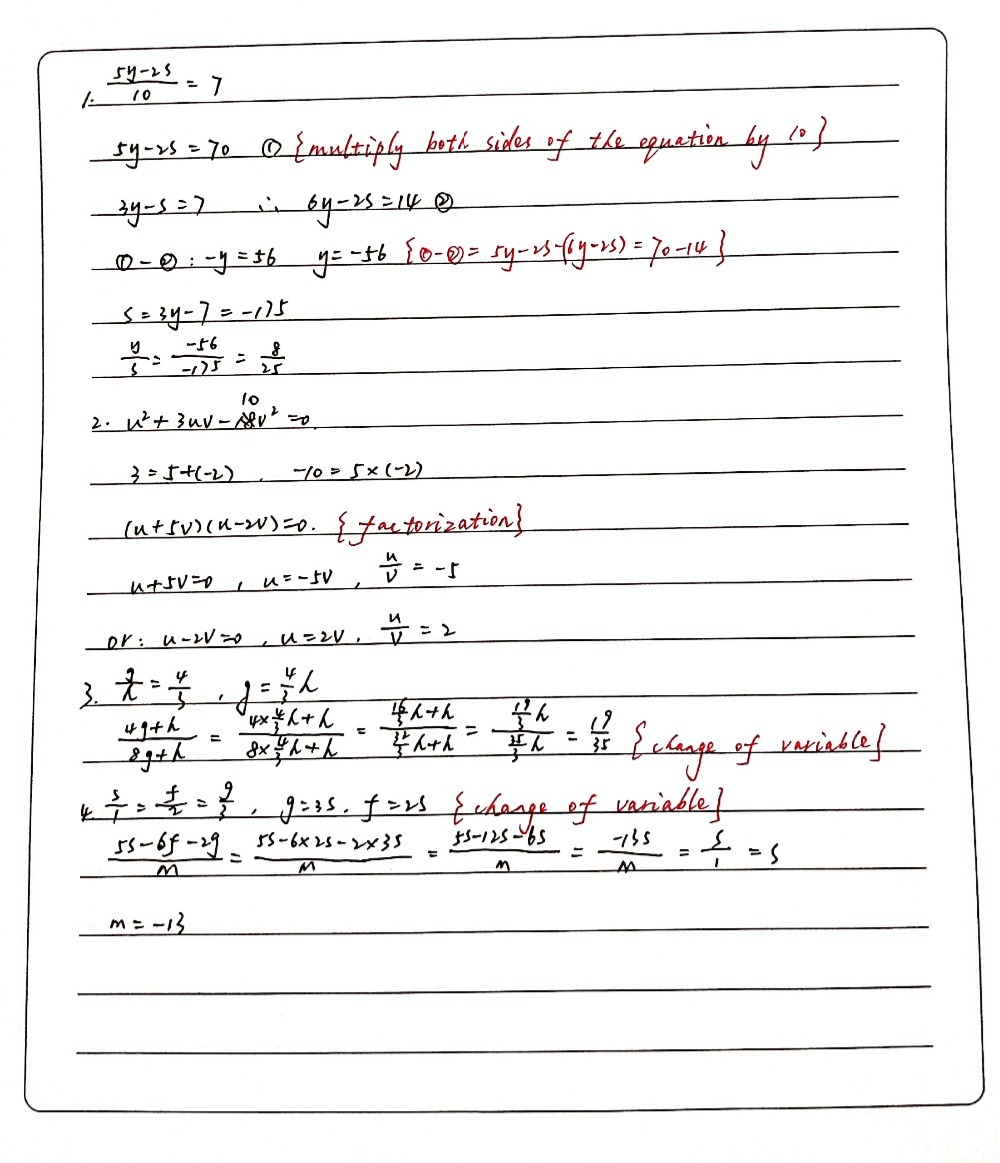 1. (5y-2s)/10 = 7
5y-2s = 70 ① {multiply both sides of the equation by 10}
3y-s = 7 ∴ 6y-2s = 14 ②
①-②: -y = 56 y = -56 {①-② = 5y-2s-(6y-2s) = 70-14}
s = 3y-7 = -175
y/s = -56/-175 = 8/25
2. u² + 3uv - 10v² = 0.
3 = 5+(-2), -10 = 5×(-2)
(u+5v)(u-2v)=0. {factorization}
u+5v=0, u=-5v, u/v = -5
or: u-2v=0, u=2v, u/v = 2
3. g/h = 4/3, g = 4/3 h
(4g+h)/(8g+h) = (4×4/3 h+h)/(8×4/3 h+h) = (16/3 h+h)/(32/3 h+h) = (19/3 h)/(35/3 h) = 19/35 {change of variable}
4. s/1 = f/2 = g/3, g=3s, f=2s {change of variable}
(5s-6f-2g)/m = (5s-6×2s-2×3s)/m = (5s-12s-6s)/m = -13s/m = s/1 = s
m = -13